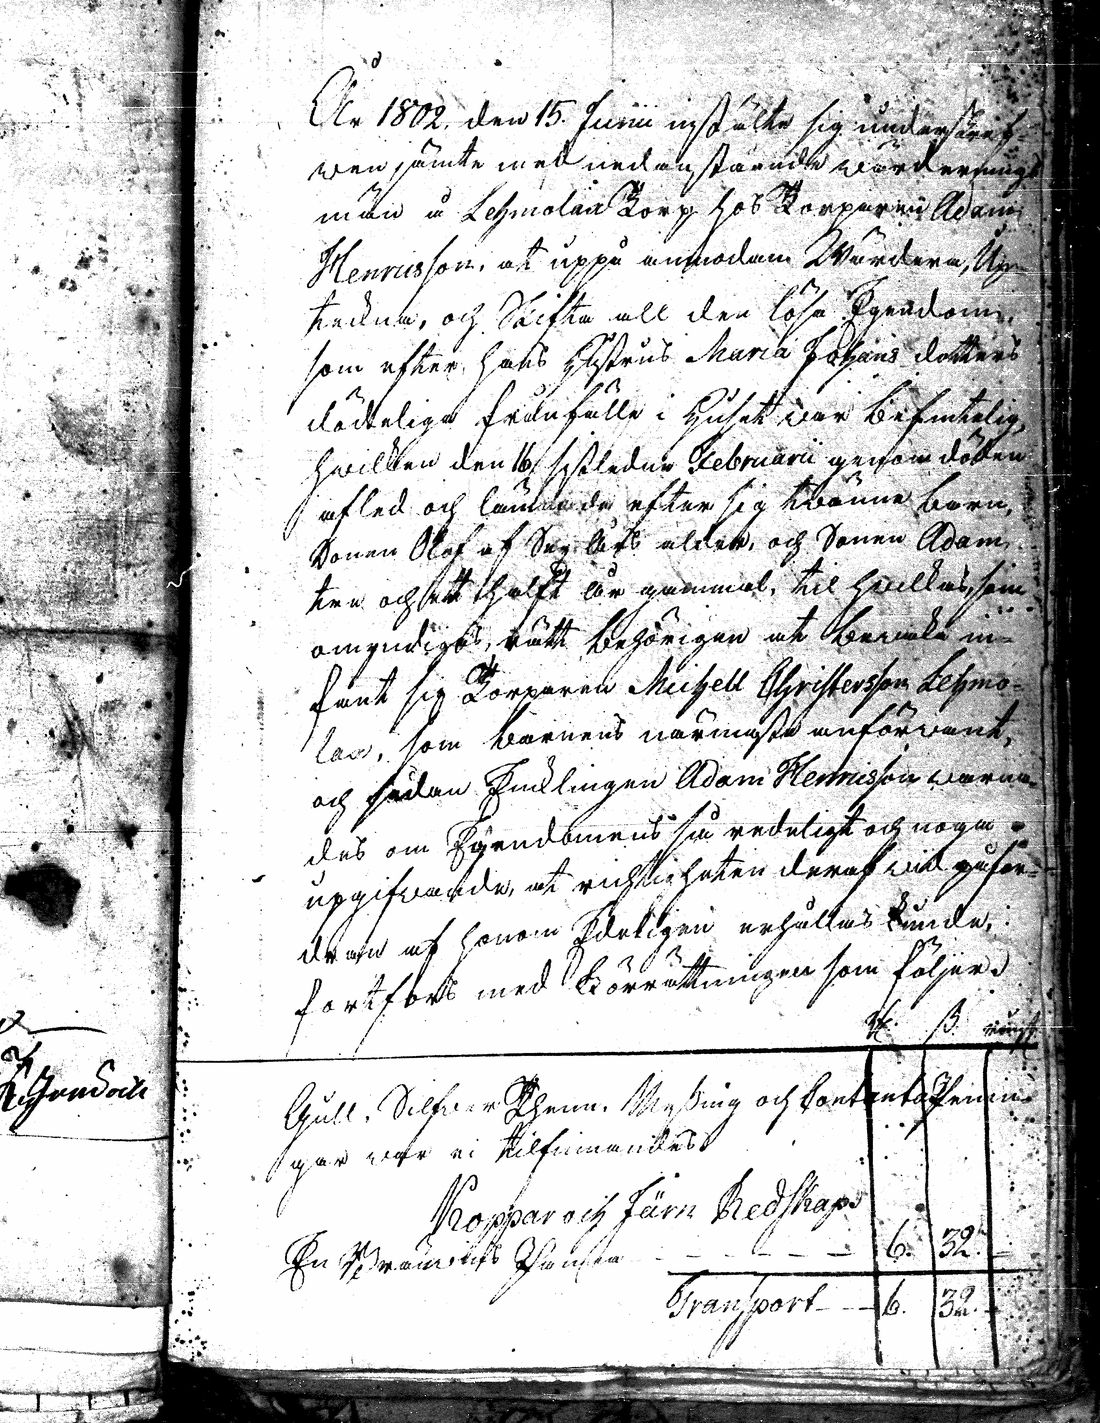 År 1802. den 15. Junii instälte sig underskref-
wen jämte med nedanstående wärderings
män å Lehmolax Torp hos Torparen Adam
Henricsson, at uppå anmodan Wärdera, Up-
tekna, och Skifta all den lösa Egendom,
som efter hans Hustrus Maria Johans dotters
dödeliga frånfälle i Huset war befintelig,
hwilken den 16 sistledne Februarii genom döden
afled och lämnade efter sig twänne barn,
Sonen Olof af Sex års ålder, och Sonen Adam
tre och ett halft år gammal, til hwilkas, som
omyndigas, rätt behörigen at bewaka in-
fant sig Torparen Michell Christersson Lehmo-
lax, som barnens närmaste anförvant,
och sedan Enklingen Adam Henricsson warna-
des om Egendomens så redeligt och noga
upgifwande, at richtigheten deraf wid påfor-
dran af honom Edeligen erhållas kunde,
fortfors med Förrättningen som följer.
ß. rungst.
Gull, Silfwer Thenn, Messing och Contanta Penin-
gar war ei tilfinnandes
Koppar och Järn Redskap
En Bränwins Panna 6. 32. —
Transport 6. 32. —